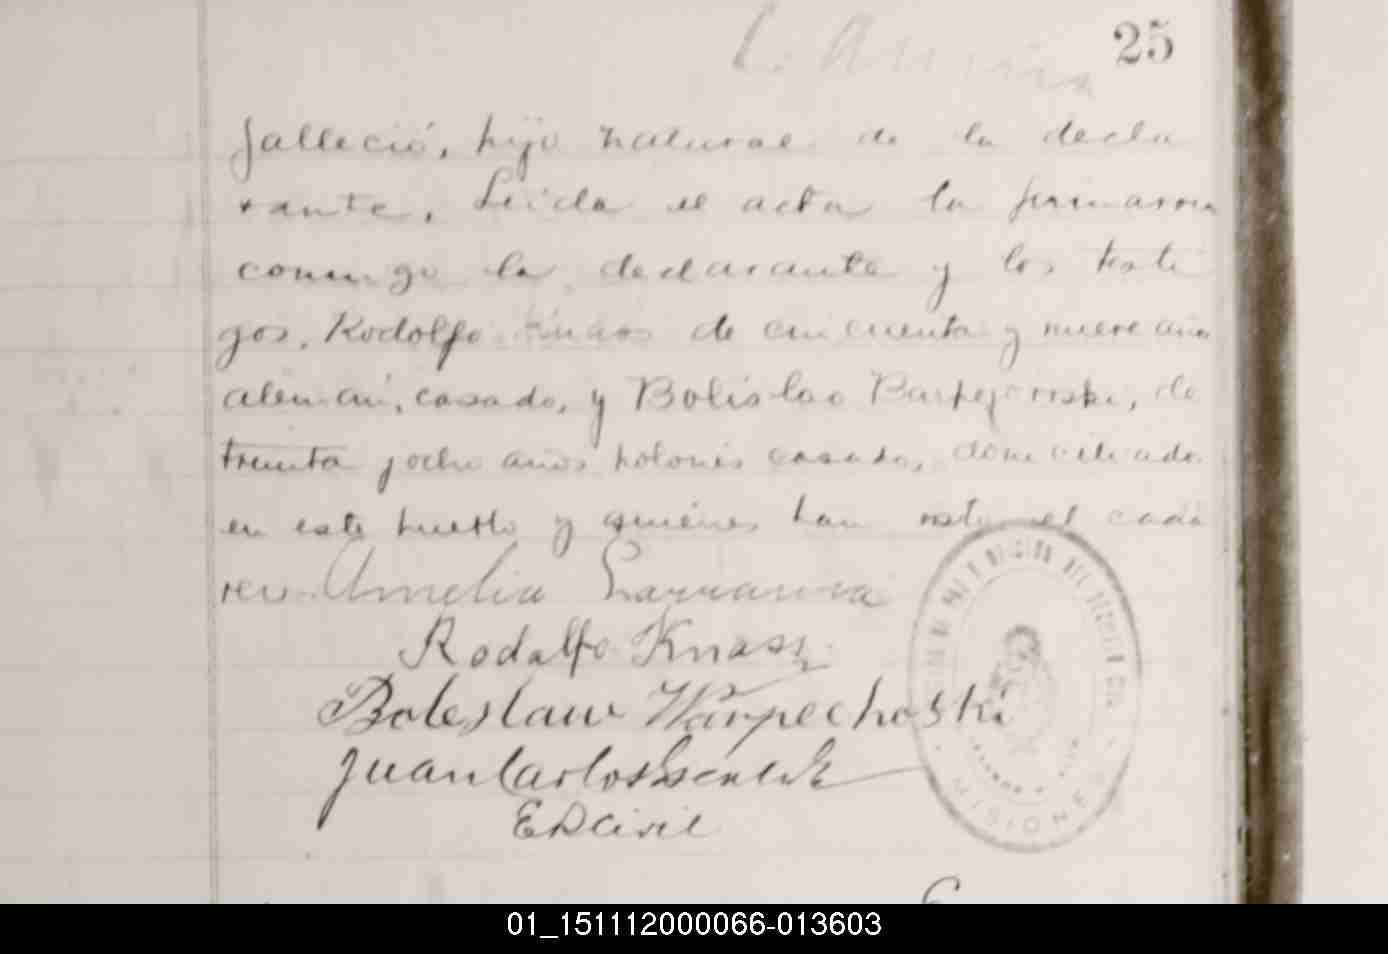 25
falleció, hijo natural de la decla
rante, Leida el acta la firmaron
conmigo la declarante y los testi
gos, Rodolfo Knass de cincuenta y nueve años
alemán, casado, y Bolislao
treinta y ocho años polonés casado, domiciliados
en este pueblo y quienes han visto el cadá
ver. Amelia
Rodolfo Knass
Boleslaw Warpechoski
Juan Carlos
E D Civil
MISIONES
01_151112000066-013603